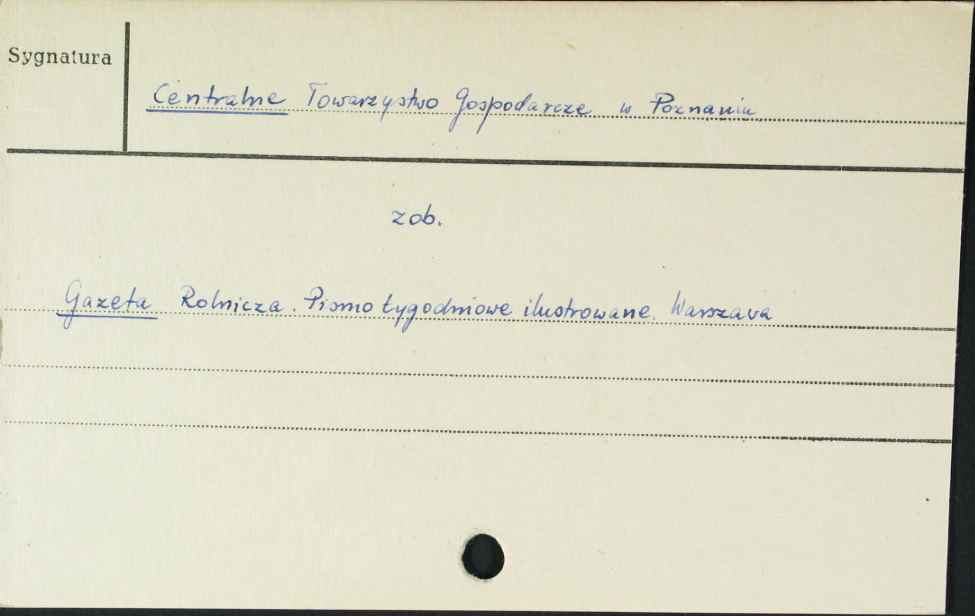 Sygnatura
Centralne Towarzystwo Gospodarcze w Poznaniu
zob.
Gazeta Rolnicza. Pismo tygodniowe ilustrowane. Warszawa